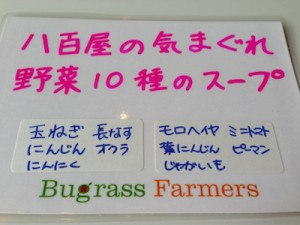 八百屋の気まぐれ
野菜10種のスープ
玉ねぎ 長なす
にんじん オクラ
にんにく
モロヘイヤ ミニトマト
葉にんじん ピーマン
じゃがいも
Bugrass Farmers